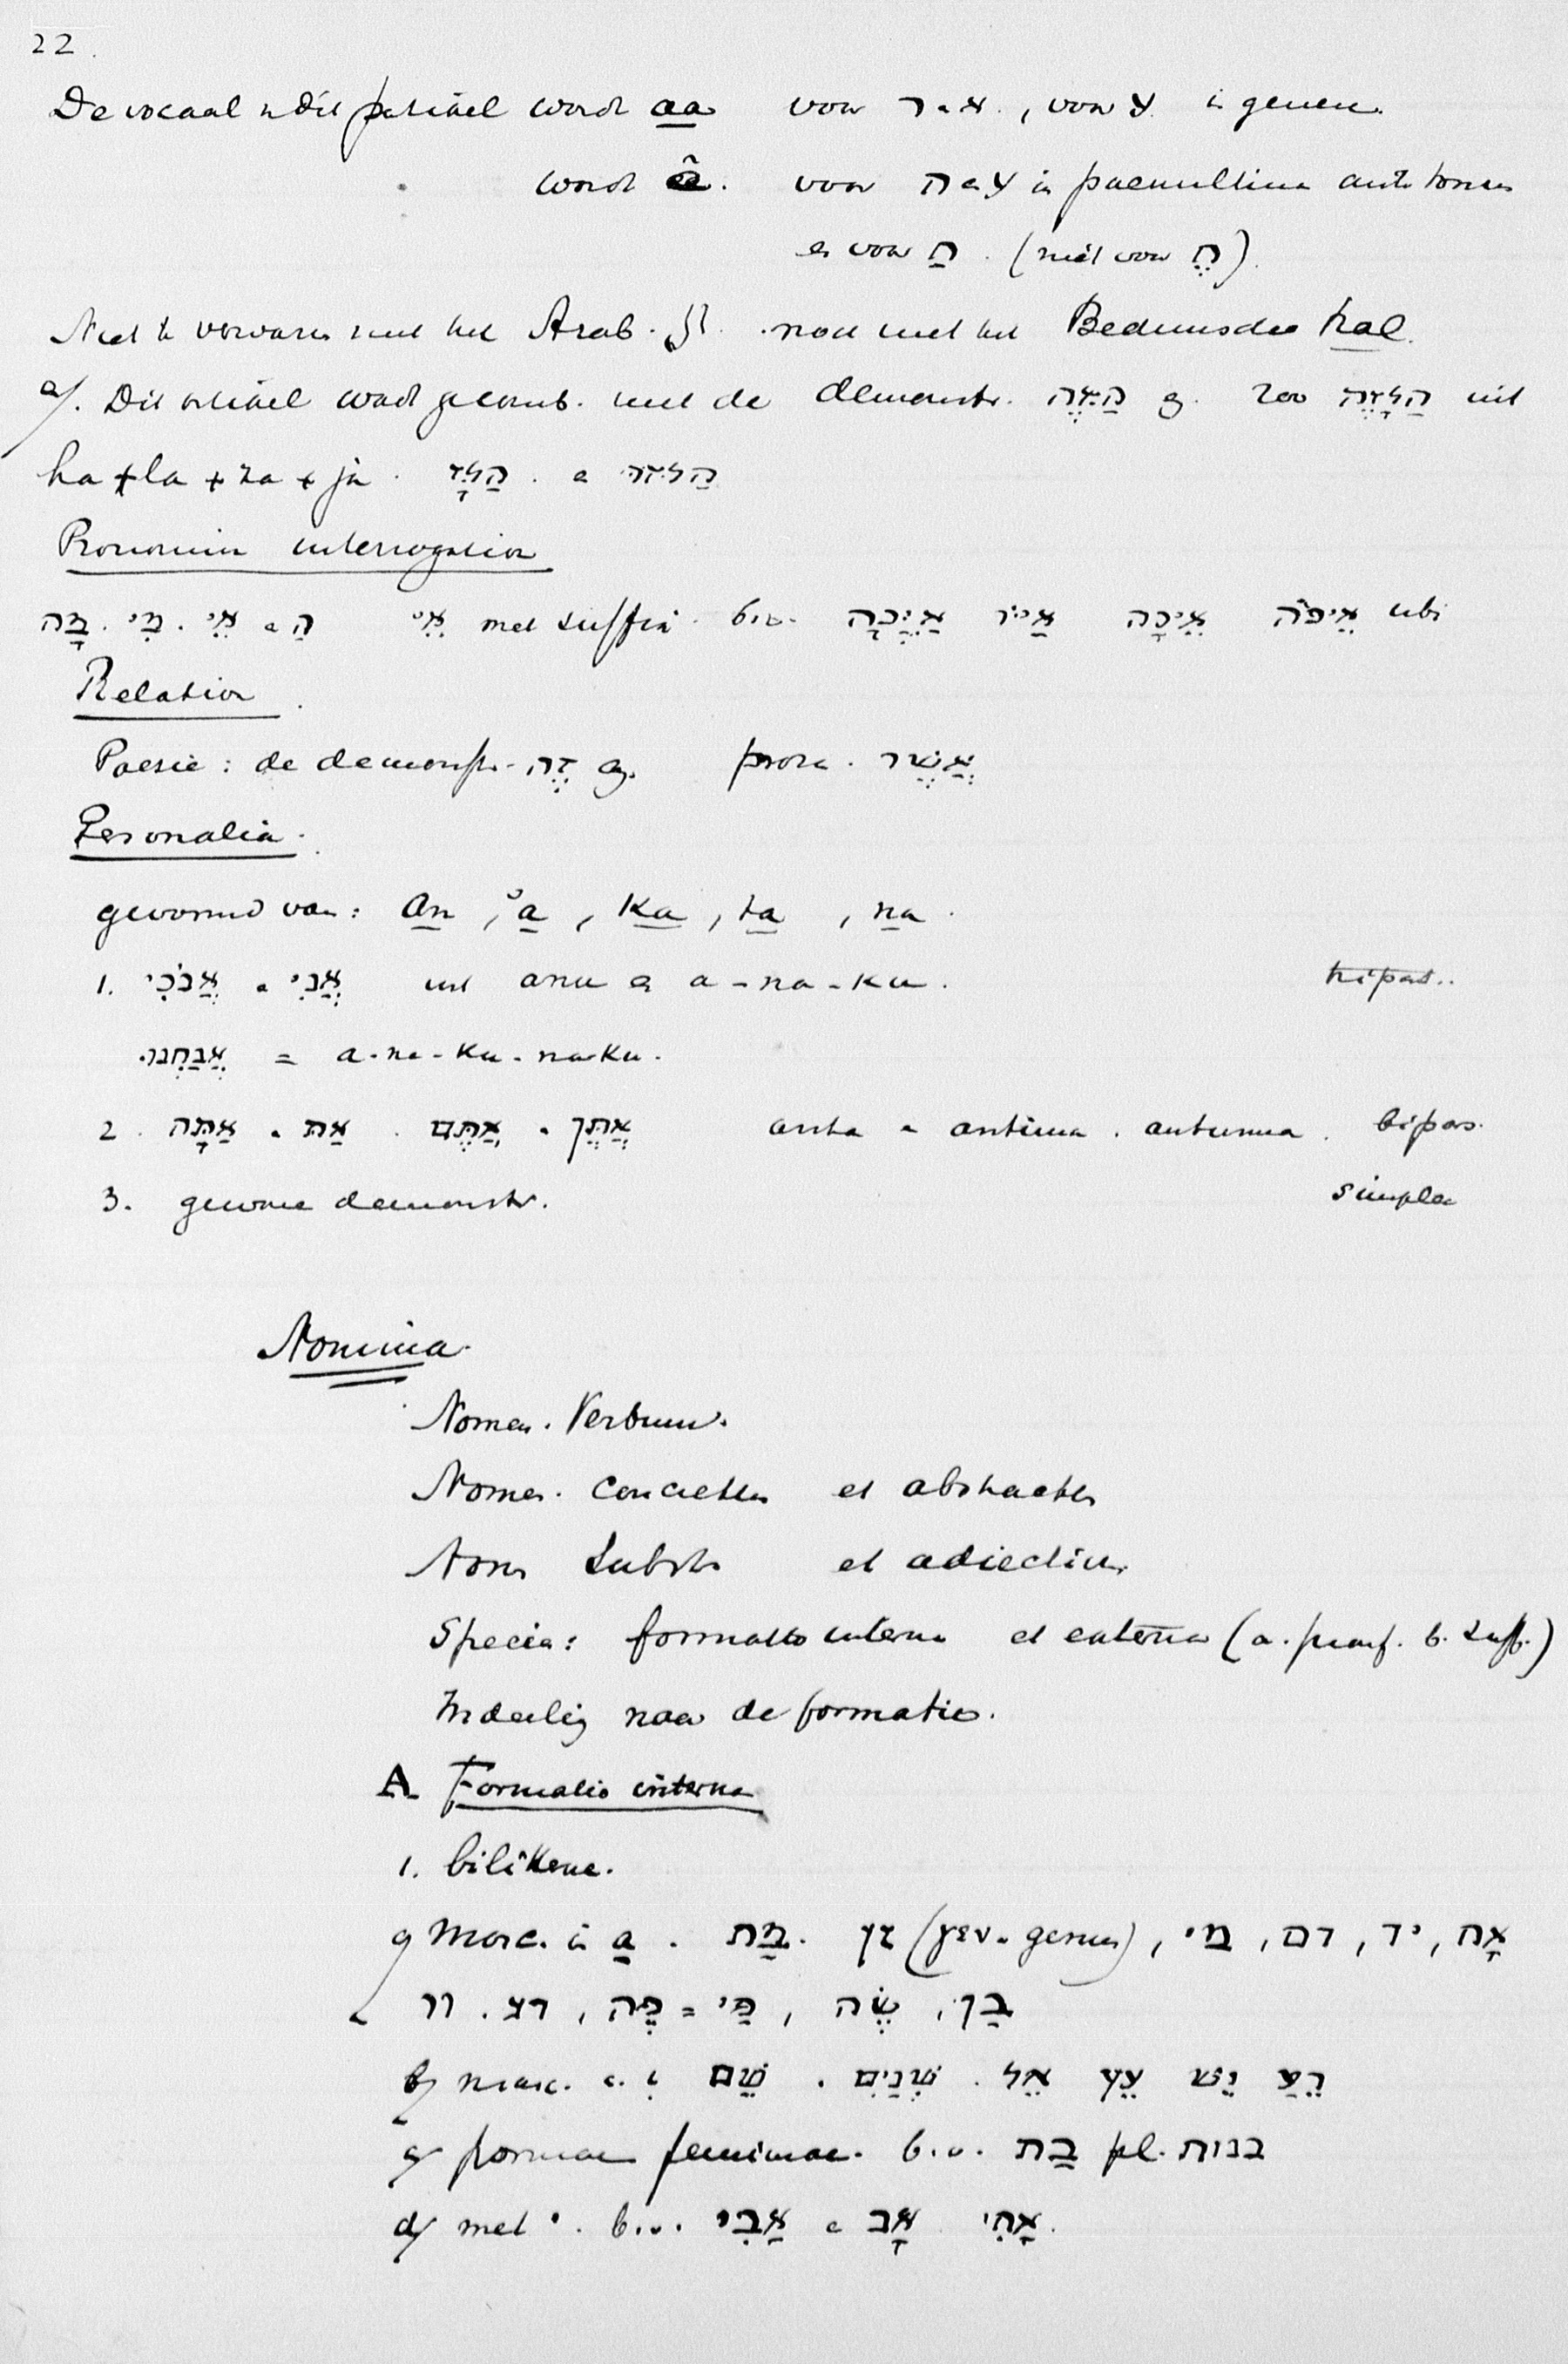 22.
De vocaal v. dit partikel wordt aa voor א . ר, voor ע in geneu.
wordt ê. voor ה e ע in paenultima ante tonum
en voor חַ. (niet voor חֶ).
Niet te verwarren met het Arab. ال. noch met het Bedouinsche hal.
a/. Dit artikel wordt gecomb. met de demonstr. הַזֶּה ej. zoo הַלָּזֶה uit
ha + la + za + ja. הַלָּז. e הַלזה
Pronomina interrogativa
הַ e אֵי. מִי. מָה אֵי met suffix b.v. אַיֶּכָּה אַיּוֹ אֵיכָה אֵיפֹה ubi
Relativa.
Poesie: de demonstr. זֶה ej. proza. אֲשֶׁר
Personalia.
gevormd van: an, 'a, ka, ta, na.
1. אָנֹכִי e אֲנִי uit anu en a-na-ku. tripart.
אֲנַחְנוּ = a-na-ku-naku.
2. אַתָּה e אַתּ. אַתֶּם e אַתֶּן anta e antima. antumma. bipar.
3. gewone demonstr. simplex
Nomina.
Nomen. Verbum.
Nomen. concretum et abstractum
Nomen Subst. et adiectivum
Species: formatio interna et externa (a. praef. b. suff.)
Indeeling naar de formatie.
A Formatio interna
1. bilitterae.
a) Masc. in a. מַת. זן (γεν. genus), אָח, יד, דם, מי
בַּן, שֶׂה, פַּי = פֶּה, רע. וו
b) masc. e. i שֵׁם. שְׁנַיִם. אֵל עֵץ יֵשׁ רֵעַ
c) formae femininae. b.v. בַּת pl. בנות
d) met י. b.v. אֲבִי e אָב אֲחִי.